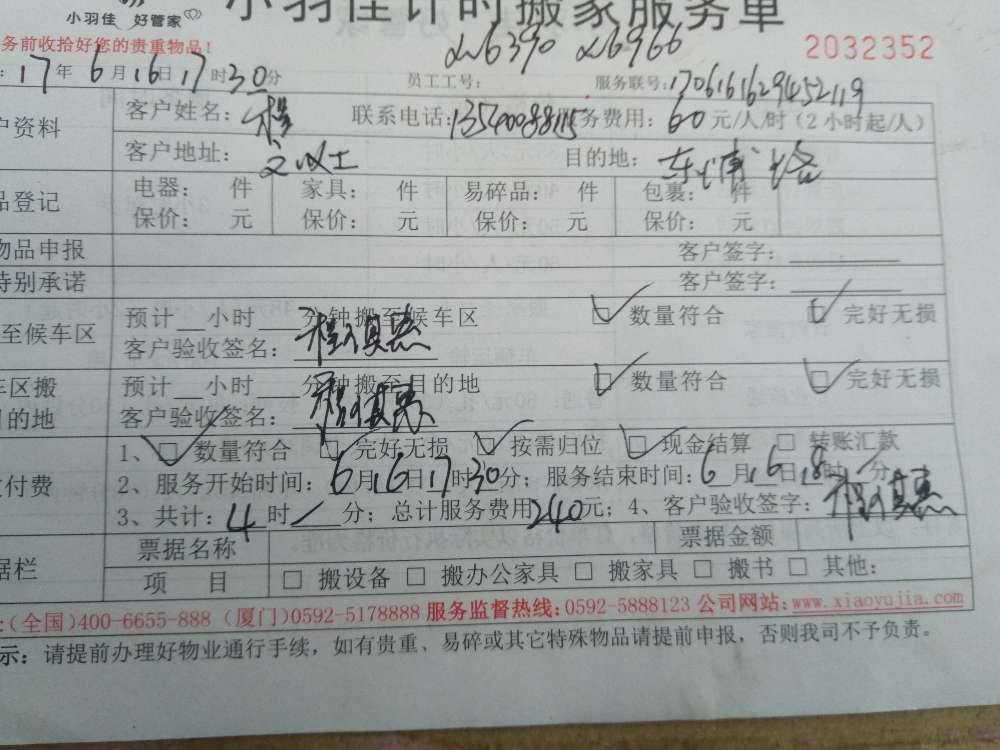 小羽佳 好管家
小羽佳计时搬家服务单
务前收拾好您的贵重物品!
6390 6966
2032352
: 17年6月16日17时30分 员工工号: 服务联号:170616162945 2119
户资料 客户姓名: 联系电话:13540088115 服务费用: 60元/人/时(2小时起/人)
客户地址: 目的地: 东浦路
品登记 电器: 件 家具: 件 易碎品: 件 包裹: 件
保价: 元 保价: 元 保价: 元 保价: 元
物品申报 客户签字:
特别承诺 客户签字:
至候车区 预计__小时__分钟搬至候车区 ☑数量符合 ☑完好无损
客户验收签名:
车区搬 预计__小时__分钟搬至目的地 ☑数量符合 ☑完好无损
目的地 客户验收签名:
1、☑数量符合 ☑完好无损 ☑按需归位 ☑现金结算 □转账汇款
付费 2、服务开始时间:6月16日17时30分; 服务结束时间:6月16日18时/分;
3、共计:4时/分; 总计服务费用240元; 4、客户验收签字:
票据名称 票据金额
据栏 项 目 □搬设备 □搬办公家具 □搬家具 □搬书 □其他:
:(全国)400-6655-888 (厦门)0592-5178888 服务监督热线:0592-5888123 公司网站:www.xiaoyujia.com
示: 请提前办理好物业通行手续,如有贵重、易碎或其它特殊物品请提前申报,否则我司不予负责。